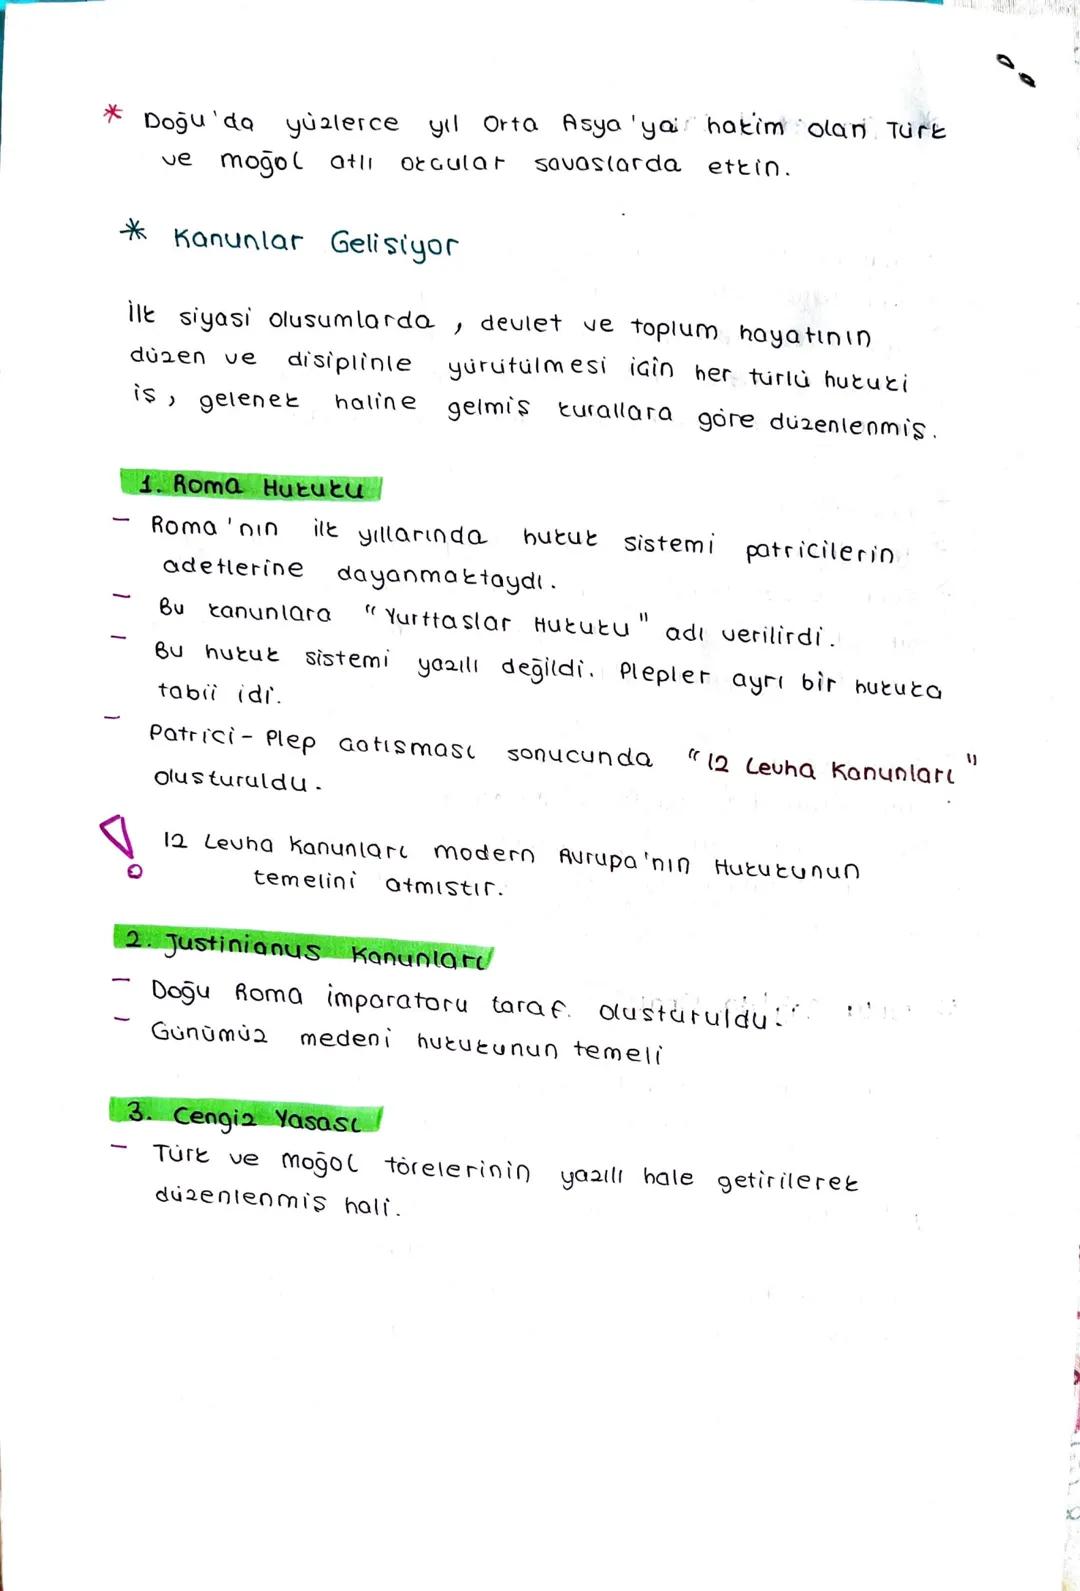 * Doğu'da yüzlerce yıl Orta Asya'ya hakim olan Türk
ve moğol atlı okçular savaşlarda etkin.
* Kanunlar Gelişiyor
İlk siyasi oluşumlarda, devlet ve toplum hayatının
düzen ve disiplinle yürütülmesi için her türlü hukuki
iş, gelenek haline gelmiş kurallara göre düzenlenmiş.
1. Roma Hukuku
- Roma'nın ilk yıllarında hukuk sistemi patricilerin
adetlerine dayanmaktaydı.
- Bu kanunlara "Yurttaşlar Hukuku" adı verilirdi.
- Bu hukuk sistemi yazılı değildi. Plepler ayrı bir hukuka
tabii idi.
- Patrici-Plep çatışması sonucunda "12 Levha Kanunları"
oluşturuldu.
! 12 Levha Kanunları modern Avrupa'nın Hukukunun
temelini atmıştır.
2. Justinianus Kanunları
- Doğu Roma imparatoru taraf. oluşturuldu.
- Günümüz medeni hukukunun temeli
3. Cengiz Yasası
- Türk ve moğol törelerinin yazılı hale getirilerek
düzenlenmiş hali.